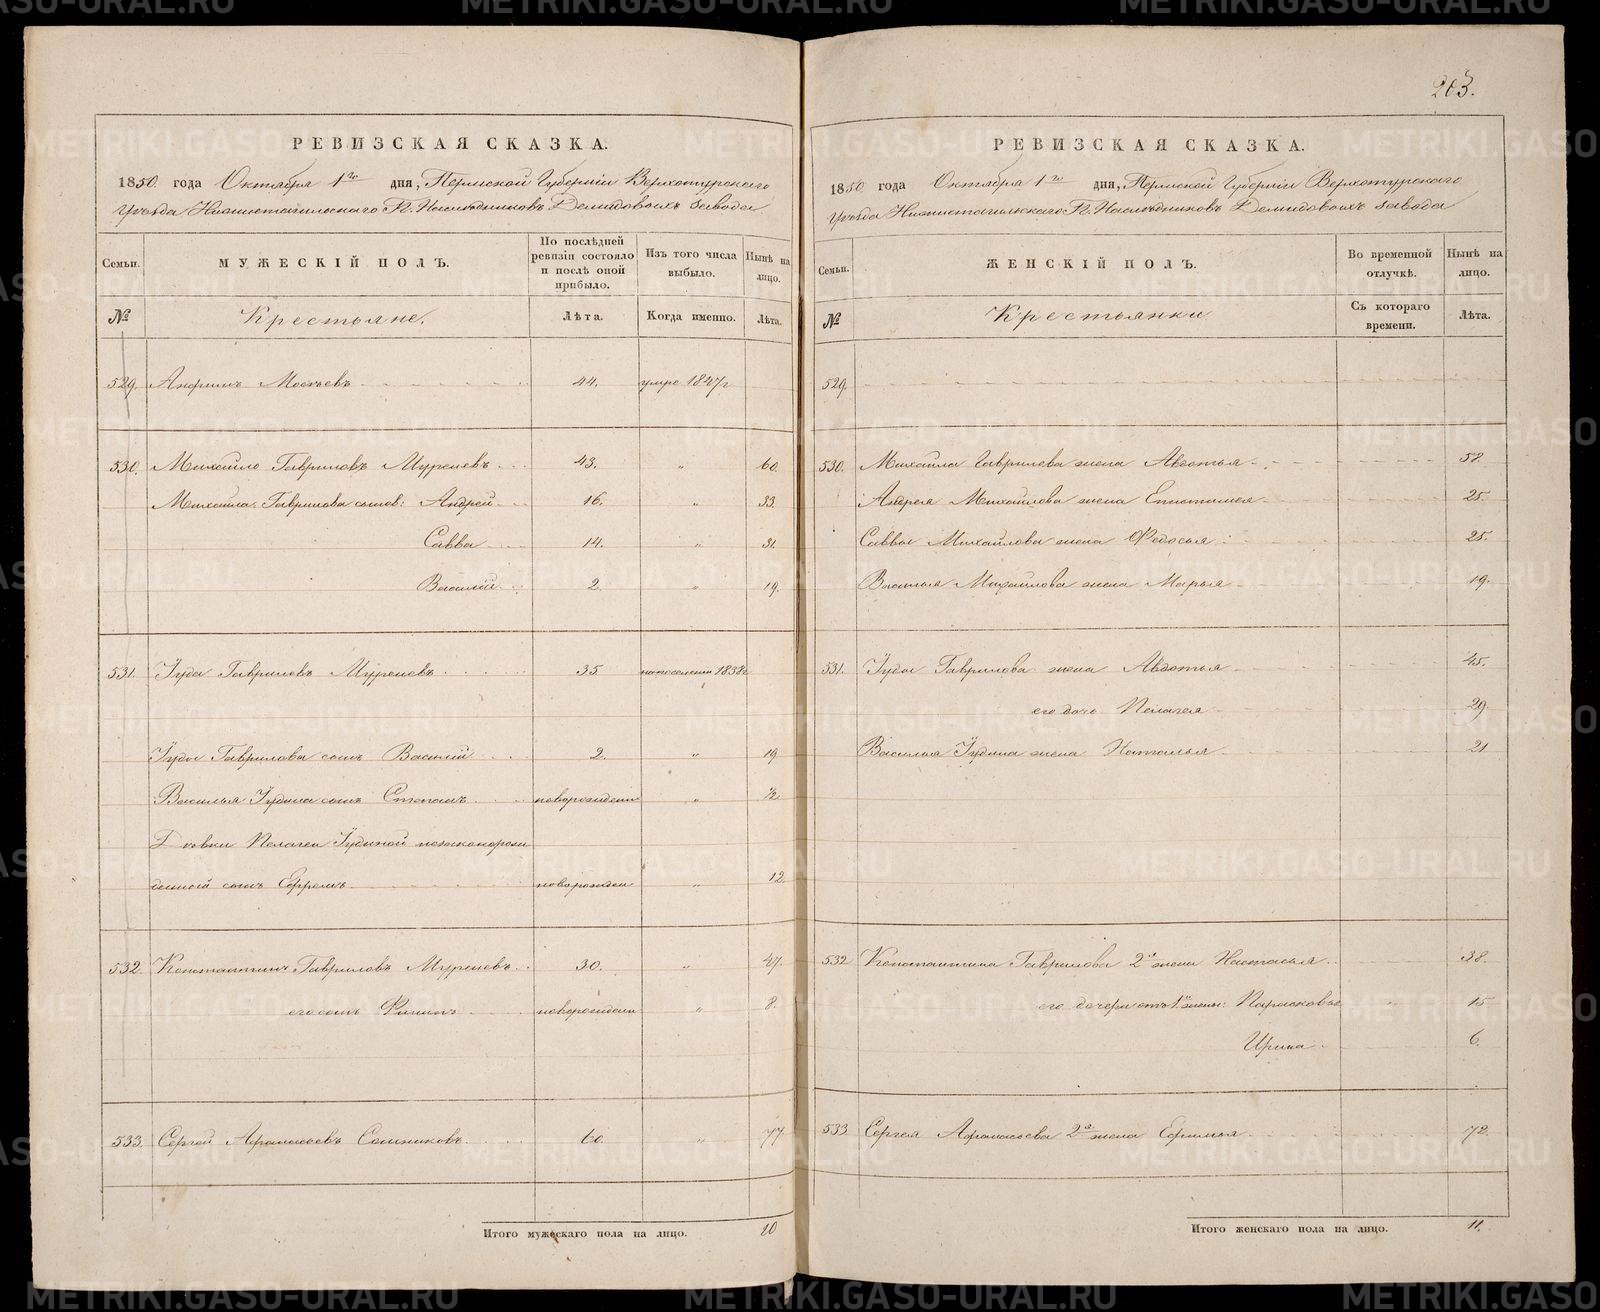 203.
РЕВИЗСКАЯ СКАЗКА.
1850 года Октября 1го дня, Пермской Губерніи Верхотурскаго
Уѣзда Нижнетагильскаго Гг. Наслѣдниковъ Демидовыхъ завода
Семьи. МУЖЕСКІЙ ПОЛЪ. По послѣдней ревизіи состояло и послѣ оной прибыло. Изъ того числа выбыло. Нынѣ на лицо.
№ Крестьяне. Лѣта. Когда именно. Лѣта.
529. 44. умре 1847г
530. Михайло Гавриловъ 43. " 60.
Михайла Гаврилова сынов: Андрей 16. " 33.
Савва 14. " 31.
Василій 2. " 19.
531. Іуда Гавриловъ 35 на поселеніи 1838г
Іуды Гаврилова сынъ Василій 2. " 19
Василья Іудина сынъ Степанъ новорожден " ½
Дѣвки Пелагеи Іудиной незаконорож
денной сынъ Ефремъ новорожден " 12.
532. Константинъ Гавриловъ 30. " 47.
его сынъ Филипъ новорожден " 8.
533. Сергей Афанасьевъ 60 " 77
Итого мужескаго пола на лицо. 10
РЕВИЗСКАЯ СКАЗКА.
1850 года Октября 1го дня, Пермской Губерніи Верхотурскаго
Уѣзда Нижнетагильскаго Гг. Наслѣдниковъ Демидовыхъ завода
Семьи. ЖЕНСКІЙ ПОЛЪ. Во временной отлучкѣ. Нынѣ на лицо.
№ Крестьянки Съ котораго времени. Лѣта.
529.
530. Михайла Гаврилова жена Авдотья 52.
Андрея Михайлова жена Епистимея 25.
Саввы Михайлова жена Федосья 25.
Василья Михайлова жена Марья 19.
531. Іуды Гаврилова жена Авдотья 45.
его дочь Пелагея 29.
Василья Іудина жена Наталья 21
532 Константина Гаврилова 2я жена Настасья 38.
его дочери отъ 1й жены: Парасковья 15
Ирина 6.
533 Сергея Афанасьева 2я жена Ефимья 72.
Итого женскаго пола на лицо. 11.
METRIKI.GASO-URAL.RU